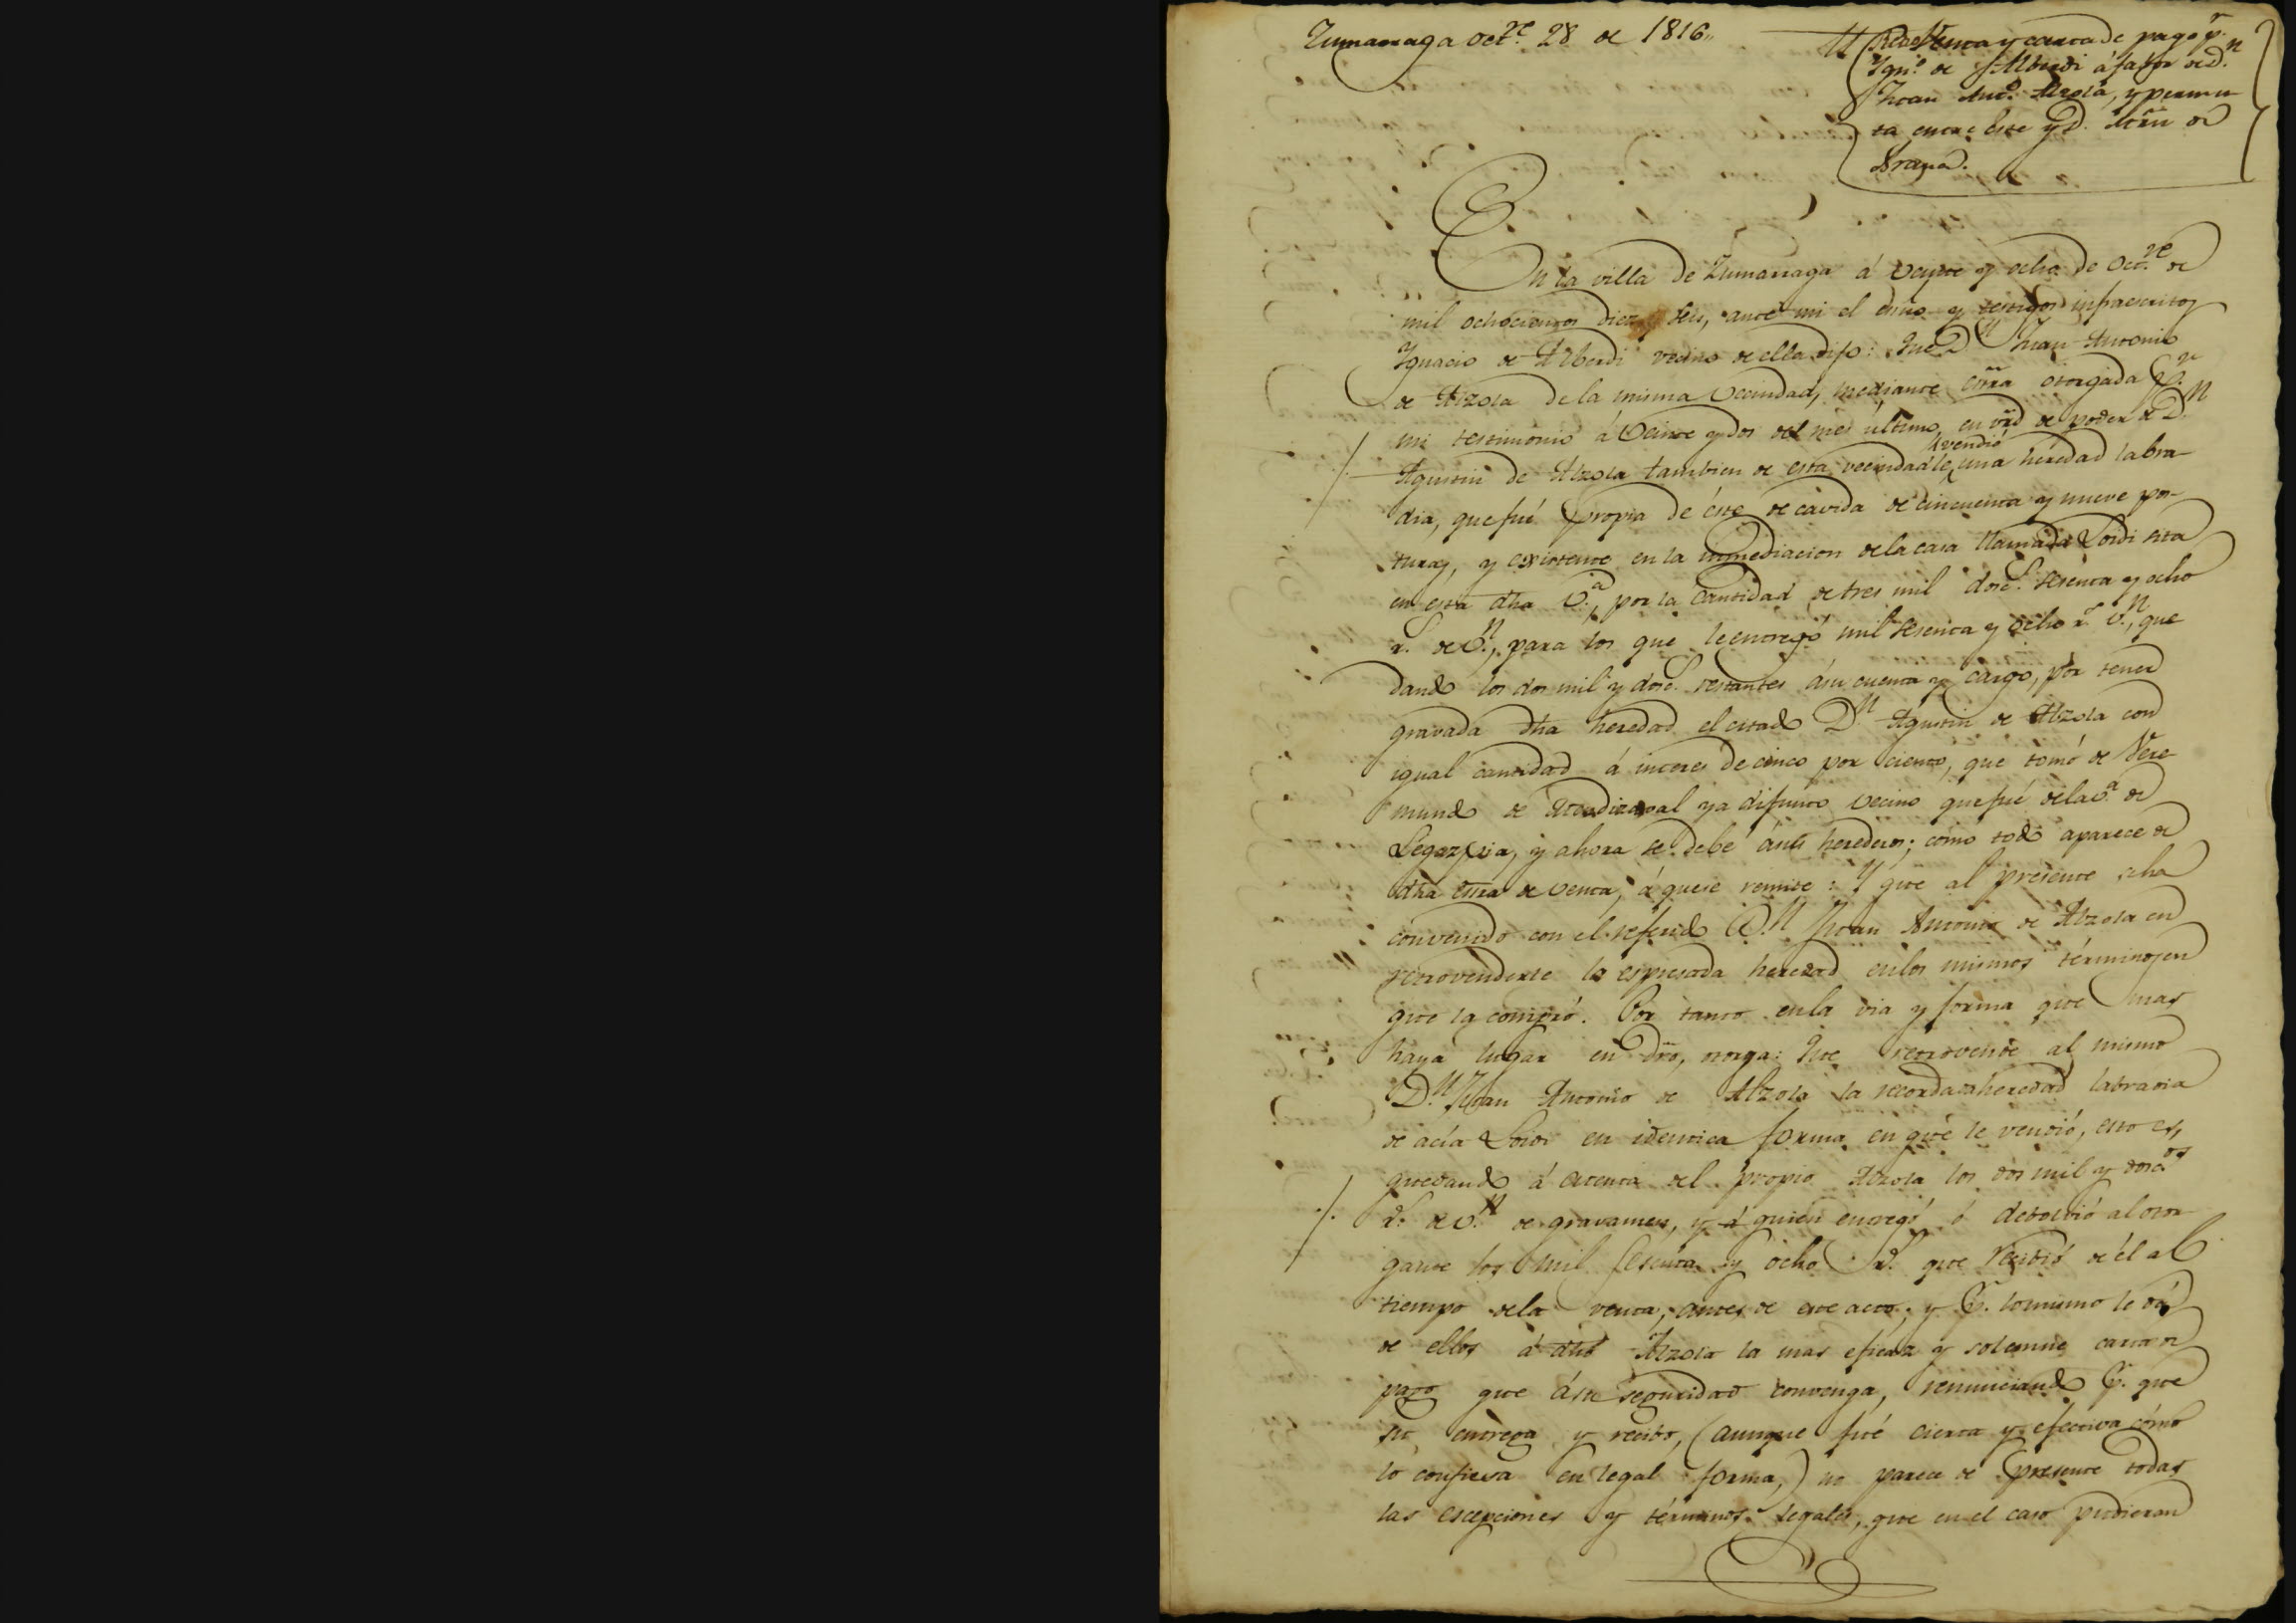 Zumarraga Oct.re 28 de 1816,,
Retroventa y carta de pago p.r
Ign.o de Alberdi á favor de D.n
Juan Ant.o Alzola, y permu-
ta entre éste y D. Mrn de
Arana.
En la villa de Zumarraga á veynte y ocho de Oct.re de
mil ochocientos diez y seis, ante mi el esno y testigos infraescritos
Ignacio de Alberdi vecino de ella dijo: Que D.n Juan Antonio
de Alzola de la misma vecindad, mediante esrra otorgada p.r
mi testimonio á veinte y dos del mes último, en vrd de poder de D.n
vendió
Agustin de Alzola tambien de esta vecindad le una heredad labra-
dia, que fué propia de éste de cavida de cincuenta y nueve pos-
turas, y existente en la inmediacion de la casa llamada Loidi sita
en esta dha V.a, por la cantidad de tres mil dosc.s sesenta y ocho
r.s de v.n, para los que le entregó mil sesenta y ocho r.s v.n, que
dando los dos mil y dosc.s restantes á su cuenta y cargo, por tener
gravada dha heredad el citado D.n Agustin de Alzola con
igual cantidad á interes de cinco por ciento, que tomó de Vere-
mundo de Mendizaval ya difunto vecino que fué de la V.a de
Legazpia, y ahora se debe á sus herederos; como todo aparece de
dha esrra de venta, á que se remite: Y que al presente se ha
convenido con el referido D.n Juan Antonio de Alzola en
retrovenderle la espresada heredad en los mismos términos en
que la compró. Por tanto en la via y forma que mas
haya lugar en dro, otorga: Que retrovende al mismo
D.n Juan Antonio de Alzola la recordada heredad labradia
de acia Loidi en identica forma en que le vendió, esto es,
quedando á cuenta del propio Alzola los dos mil y dosc.os
r.s de v.n de gravamen, y á quien entregó ó debolvió al otor-
gante los mil sesenta y ocho r.s que recibió de él al
tiempo de la venta, antes de este acto; y p. lo mismo le dá
de ellos á dho Alzola la mas eficaz y solemne carta de
pago que á su seguridad convenga, renunciando p. que
su entrega y recibo, (aunque fué cierta y efectiva cómo
lo confiesa en legal forma,) no parece de presente todas
las escepciones y términos legales, que en el caso pudieran